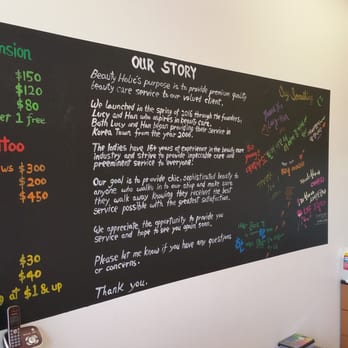 OUR STORY
Beauty Holic's purpose is to provide premium quality
beauty care service to our valued client.
We launched in the spring of 2016 through the founders,
Lucy and Han who aspires in beauty care.
Both Lucy and Han began providing their service in
Korea Town from the year 2000.
The ladies have 16+ years of experience in the beauty care
industry and strive to provide impeccable care and
preeminent service to everyone!
Our goal is to provide chic, sophisticated beauty to
anyone who walks in to our shop and make sure
they walk away knowing they received the best
service possible with the greatest satisfaction.
We appreciate the opportunity to provide you
service and hope to see you again soon.
Please let me know if you have any questions
or concerns.
Thank you.
nsion
$150
$120
$80
er 1 free
too
ws $300
$200
$450
$30
$40
g at $1 & up
Say Something